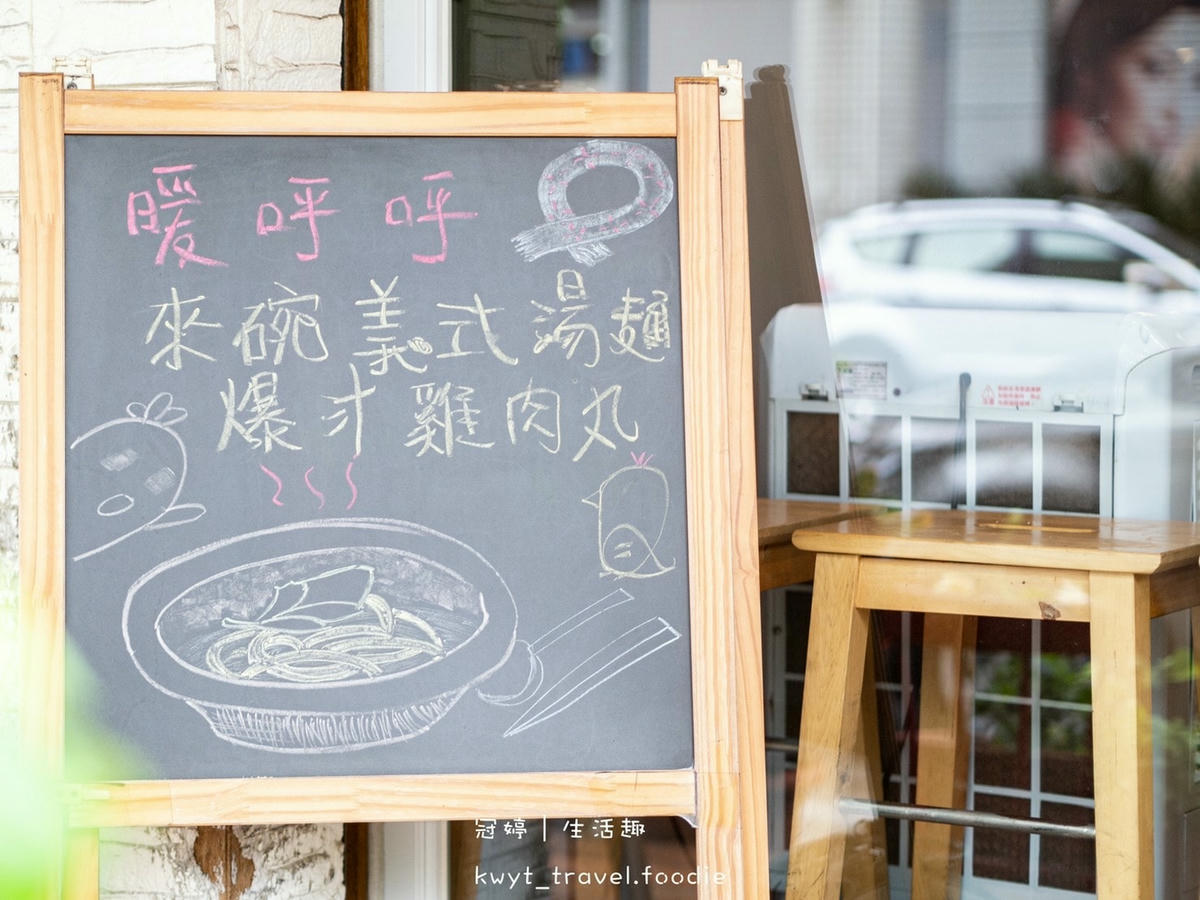 暖呼呼
來碗義式湯麵
爆汁雞肉丸
冠婷｜生活趣
kwyt_travel.foodie